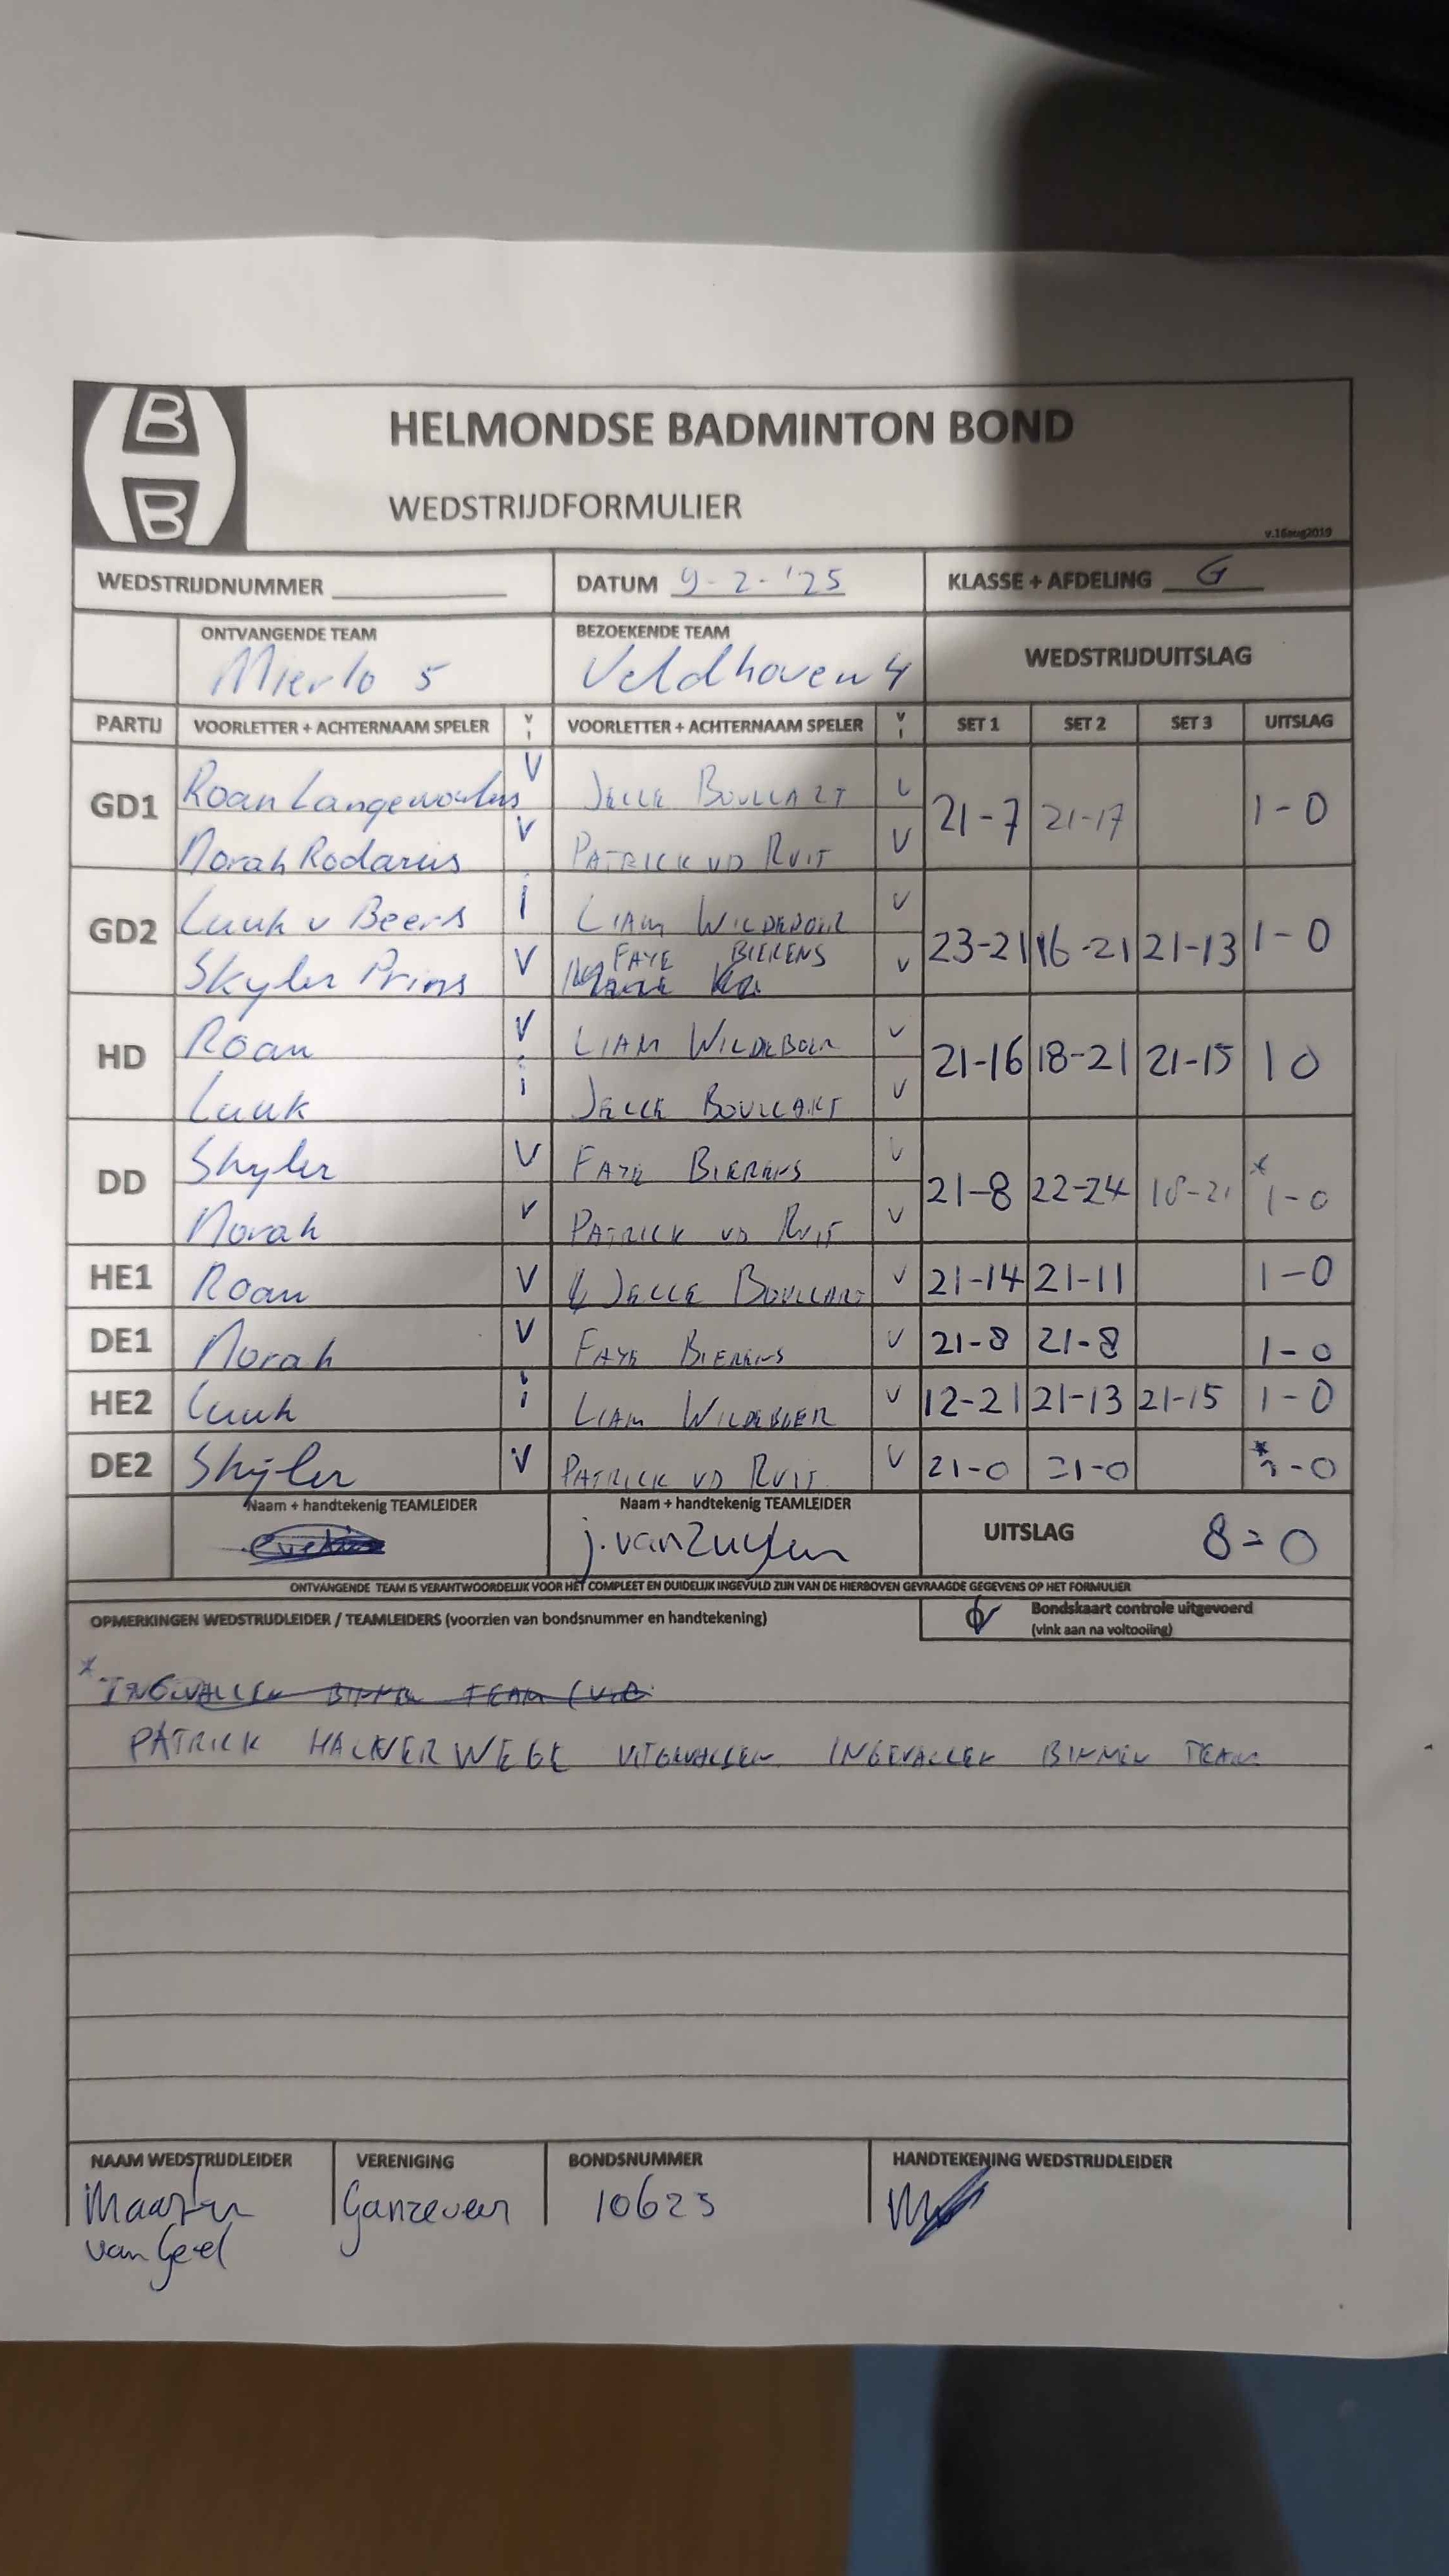 B
B
HELMONDSE BADMINTON BOND
WEDSTRIJDFORMULIER
v.16aug2019
WEDSTRIJDNUMMER DATUM 9-2-'25 KLASSE + AFDELING G
ONTVANGENDE TEAM BEZOEKENDE TEAM WEDSTRIJDUITSLAG
Mierlo 5 Veldhoven 4
PARTIJ VOORLETTER + ACHTERNAAM SPELER V i VOORLETTER + ACHTERNAAM SPELER V i SET 1 SET 2 SET 3 UITSLAG
GD1 Roan V JELLE BOULLART V 21-7 21-17 1-0
Norah Rodarius V PATRICK VD RUIT V
GD2 Luuk v Beers i LIAM WILDEBOER V 23-21 16-21 21-13 1-0
Skyler Prins V FAYE BIERENS V
HD Roan V LIAM WILDEBOER V 21-16 18-21 21-15 1 0
Luuk i JELLE BOULLART V
DD Skyler V FAYE BIERENS V 21-8 22-24 18-21 * 1-0
Norah V PATRICK VD RUIT V
HE1 Roan V JELLE BOULLART V 21-14 21-11 1-0
DE1 Norah V FAYE BIERENS V 21-8 21-8 1-0
HE2 Luuk i LIAM WILDEBOER V 12-21 21-13 21-15 1-0
DE2 Skyler V PATRICK VD RUIT V 21-0 21-0 * 1-0
Naam + handtekenig TEAMLEIDER Naam + handtekenig TEAMLEIDER UITSLAG 8-0
j. van Zuylen
ONTVANGENDE TEAM IS VERANTWOORDELIJK VOOR HET COMPLEET EN DUIDELIJK INGEVULD ZIJN VAN DE HIERBOVEN GEVRAAGDE GEGEVENS OP HET FORMULIER
OPMERKINGEN WEDSTRIJDLEIDER / TEAMLEIDERS (voorzien van bondsnummer en handtekening) Bondskaart controle uitgevoerd
(vink aan na voltooiing)
* INGEVALLEN BINNEN TEAM
PATRICK HALVERWEGE UITGEVALLEN INGEVALLEN BINNEN TEAM
NAAM WEDSTRIJDLEIDER VERENIGING BONDSNUMMER HANDTEKENING WEDSTRIJDLEIDER
Maarten Ganzeveer 10623
van Geel